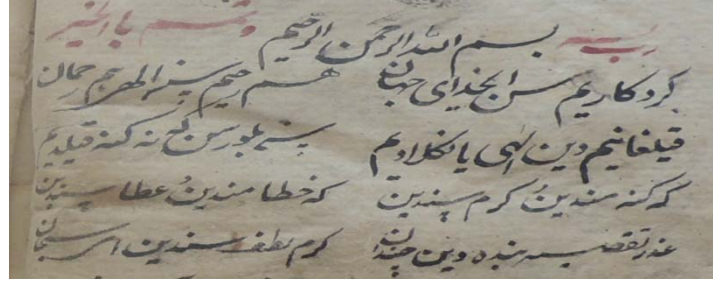 رب یسر وتمم بالخیر
بسم الله الرحمن الرحیم
کردکاریم سن ایخدای جهان هم رحیم رحمان
قیلغانیم دین الهی یانکلادیم بلورسن نه کنه قیلدیم
که کنه مندین کرم سندین که خطا مندین عطا سندین
عذر تقصیر بنده دین چندان کرم لطف سندین ای سبحان